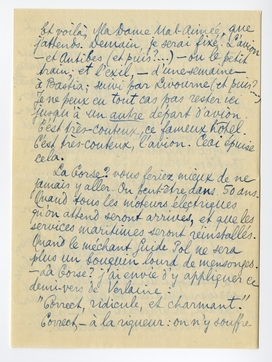 Et voilà, Ma Dame Mal-Aimée, que
j'attends. Demain, je serai fixé. L'avion
- et Antibes (et puis?...) - ou le petit
train, et l'exil, - d'une semaine -
à Bastia; suivi par Livourne (et puis?...)
Je ne peux en tout cas pas rester ici
jusqu'à un autre départ d'avion.
C'est très-coûteux, ce fameux hôtel.
C'est très-coûteux, l'avion. Ceci épuise
cela.
La Corse? vous feriez mieux de ne
jamais y aller. Ou peut-être dans 50 ans.
Quand tous les moteurs électriques
qu'on attend seront arrivés, et que les
services maritimes seront réinstallés.
Quand le méchant guide Pol, ne sera
plus un bouquin lourd de mensonges.
- La Corse? j'ai envie d'y appliquer ce
demi-vers de Verlaine:
"Correct, ridicule, et charmant".
Correct, - à la rigueur: on n'y souffre